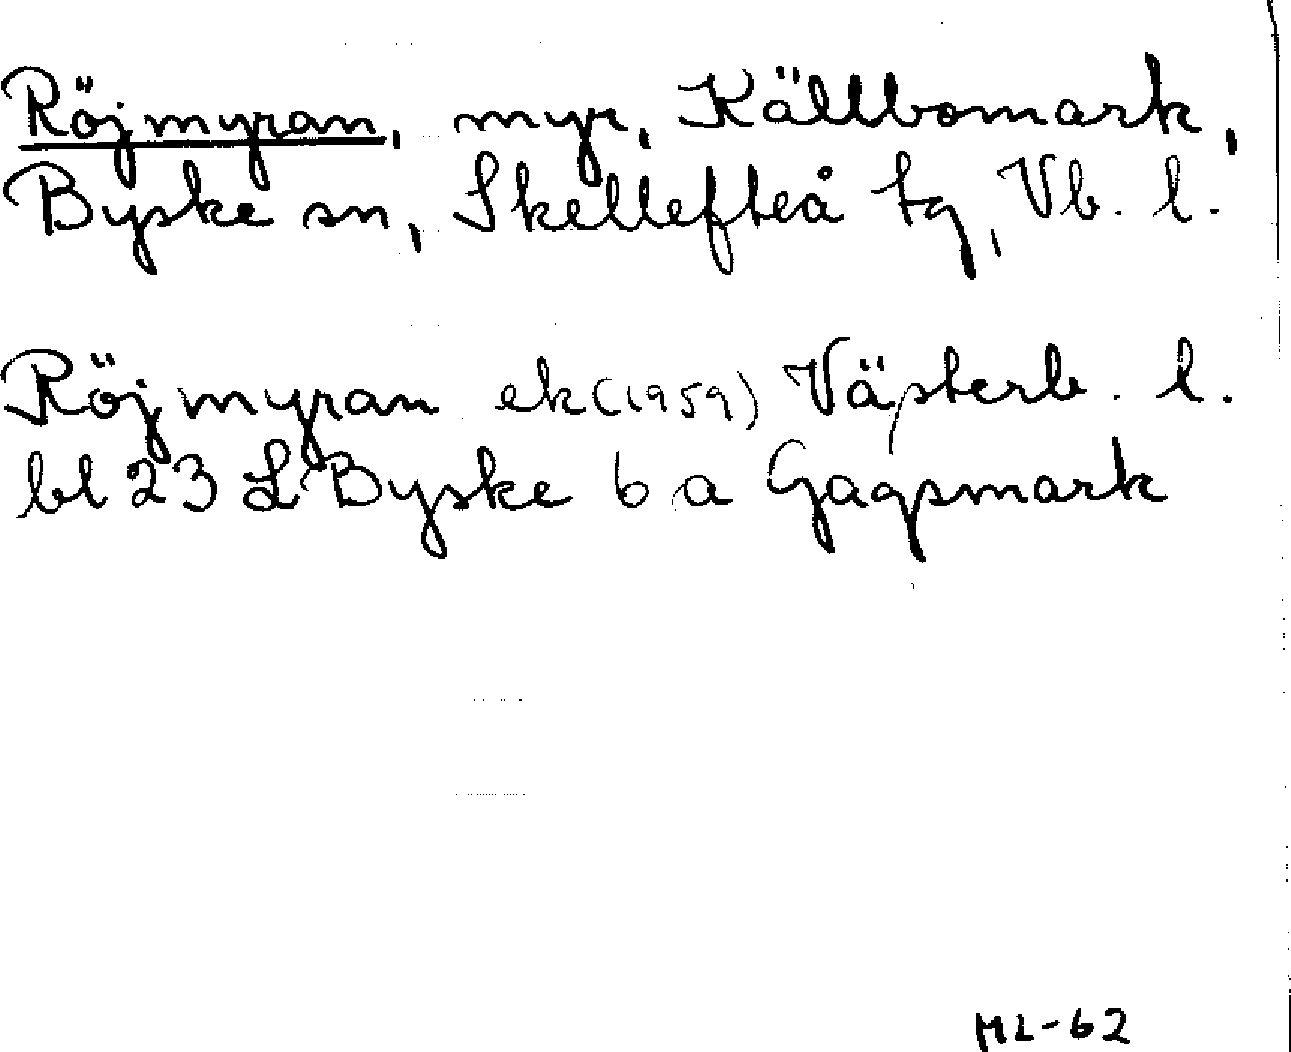 Röjmyran, myr, Källbomark,
Byske sn, Skellefteå tg, Vb. l.
Röjmyran ek (1959) Västerb. l.
bl 23 L Byske 6 a Gagsmark
ML-62